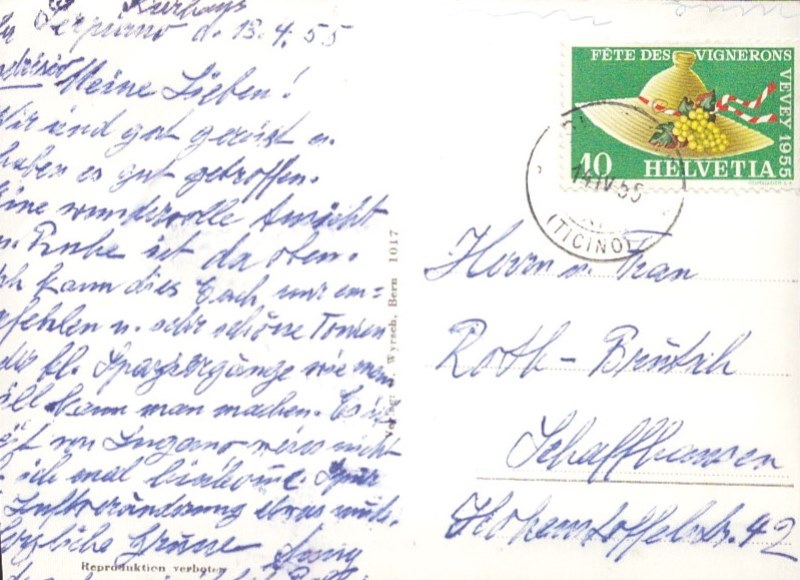 Kurhaus
Serpiano d. 13.4.55
Meine Lieben!
Wir sind gut gereist u.
haben es gut getroffen.
Eine wundervolle Ansicht
u. Ruhe ist da oben.
Ich kann dies Euch nur em=
pfehlen u. sehr schöne Touren
oder kl. Spaziergänge wie man
will kann man machen. Es ist
von Lugano weiss nicht
ich mal hinkome. Spür
Luftveränderung etwas müde.
Herzliche Grüsse
Reproduktion verboten
Verlag J. Wyrsch, Bern 1017
FÊTE DES VIGNERONS
VEVEY 1955
10 HELVETIA
14 IV 55
(TICINO)
Herrn u. Frau
Roth-Brütsch
Schaffhausen
Hohenstoffelstr. 42